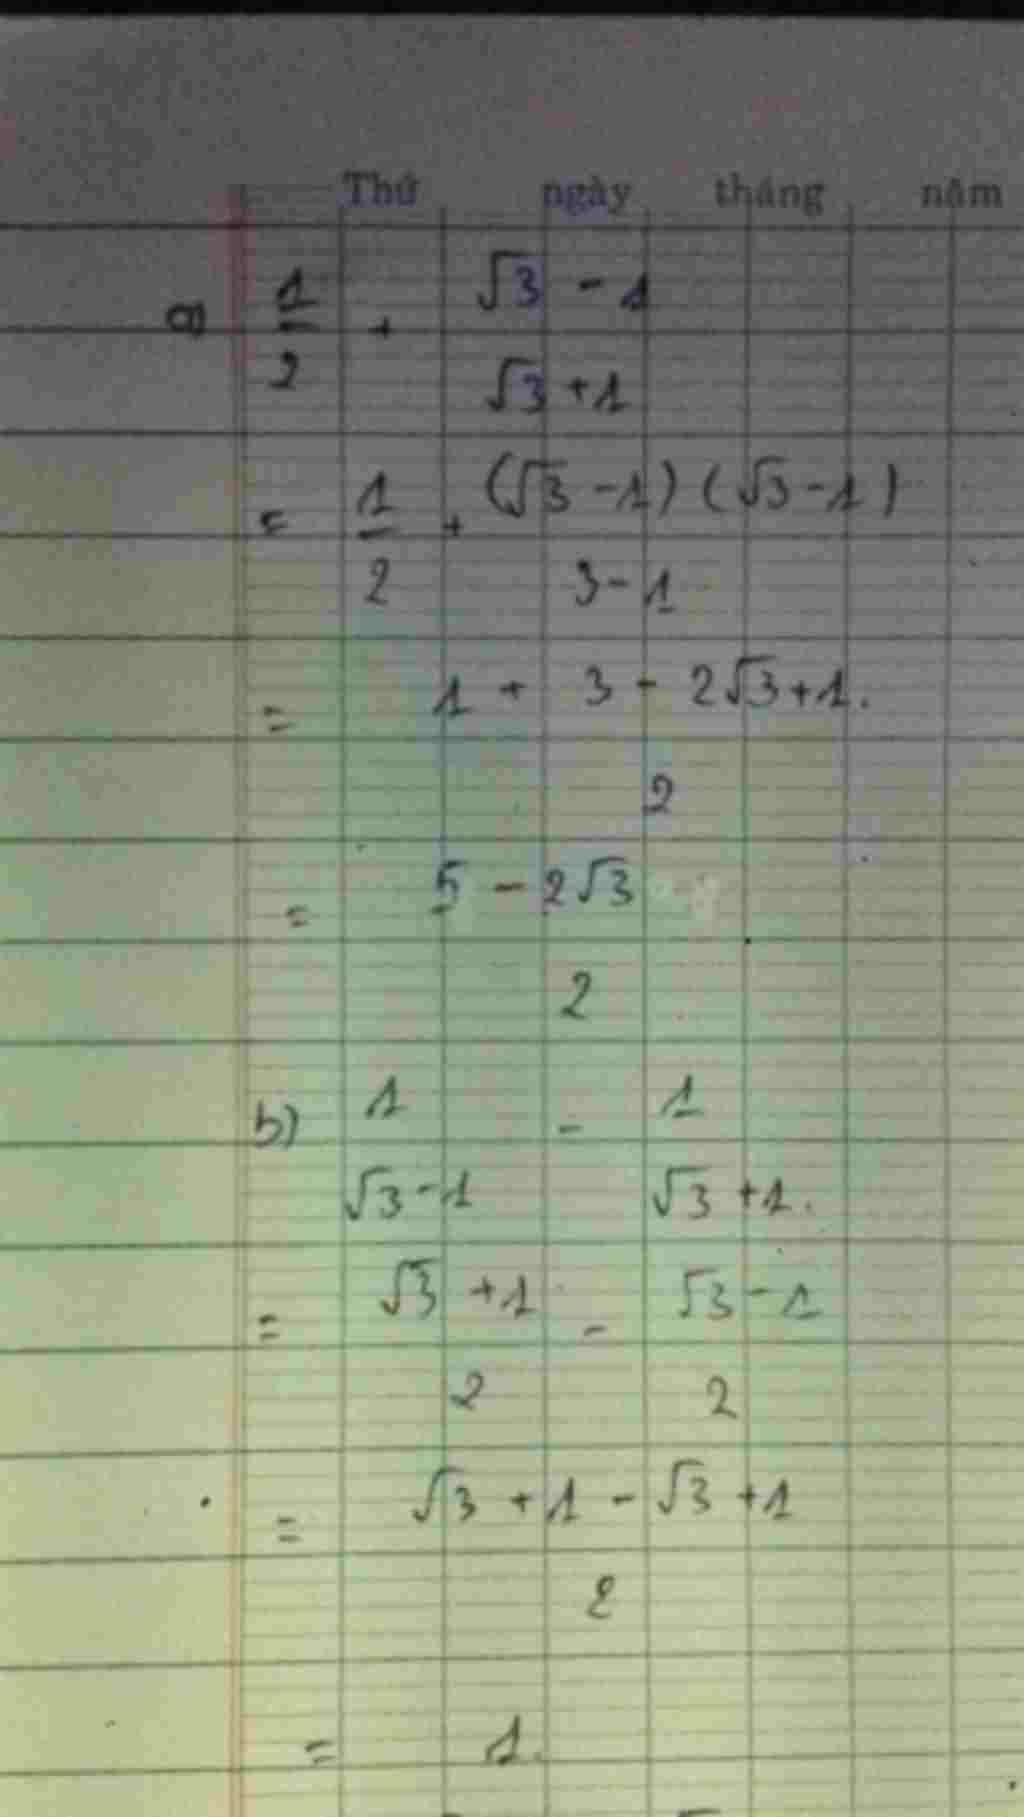 Thứ ngày tháng năm
a) 1/2 + √3 - 1 / √3 + 1
= 1/2 + (√3 - 1) (√3 - 1) / 3 - 1
= 1 + 3 - 2√3 + 1. / 2
= 5 - 2√3 / 2
b) 1 / √3 - 1 - 1 / √3 + 1.
= √3 + 1 / 2 - √3 - 1 / 2
= √3 + 1 - √3 + 1 / 2
= 1.